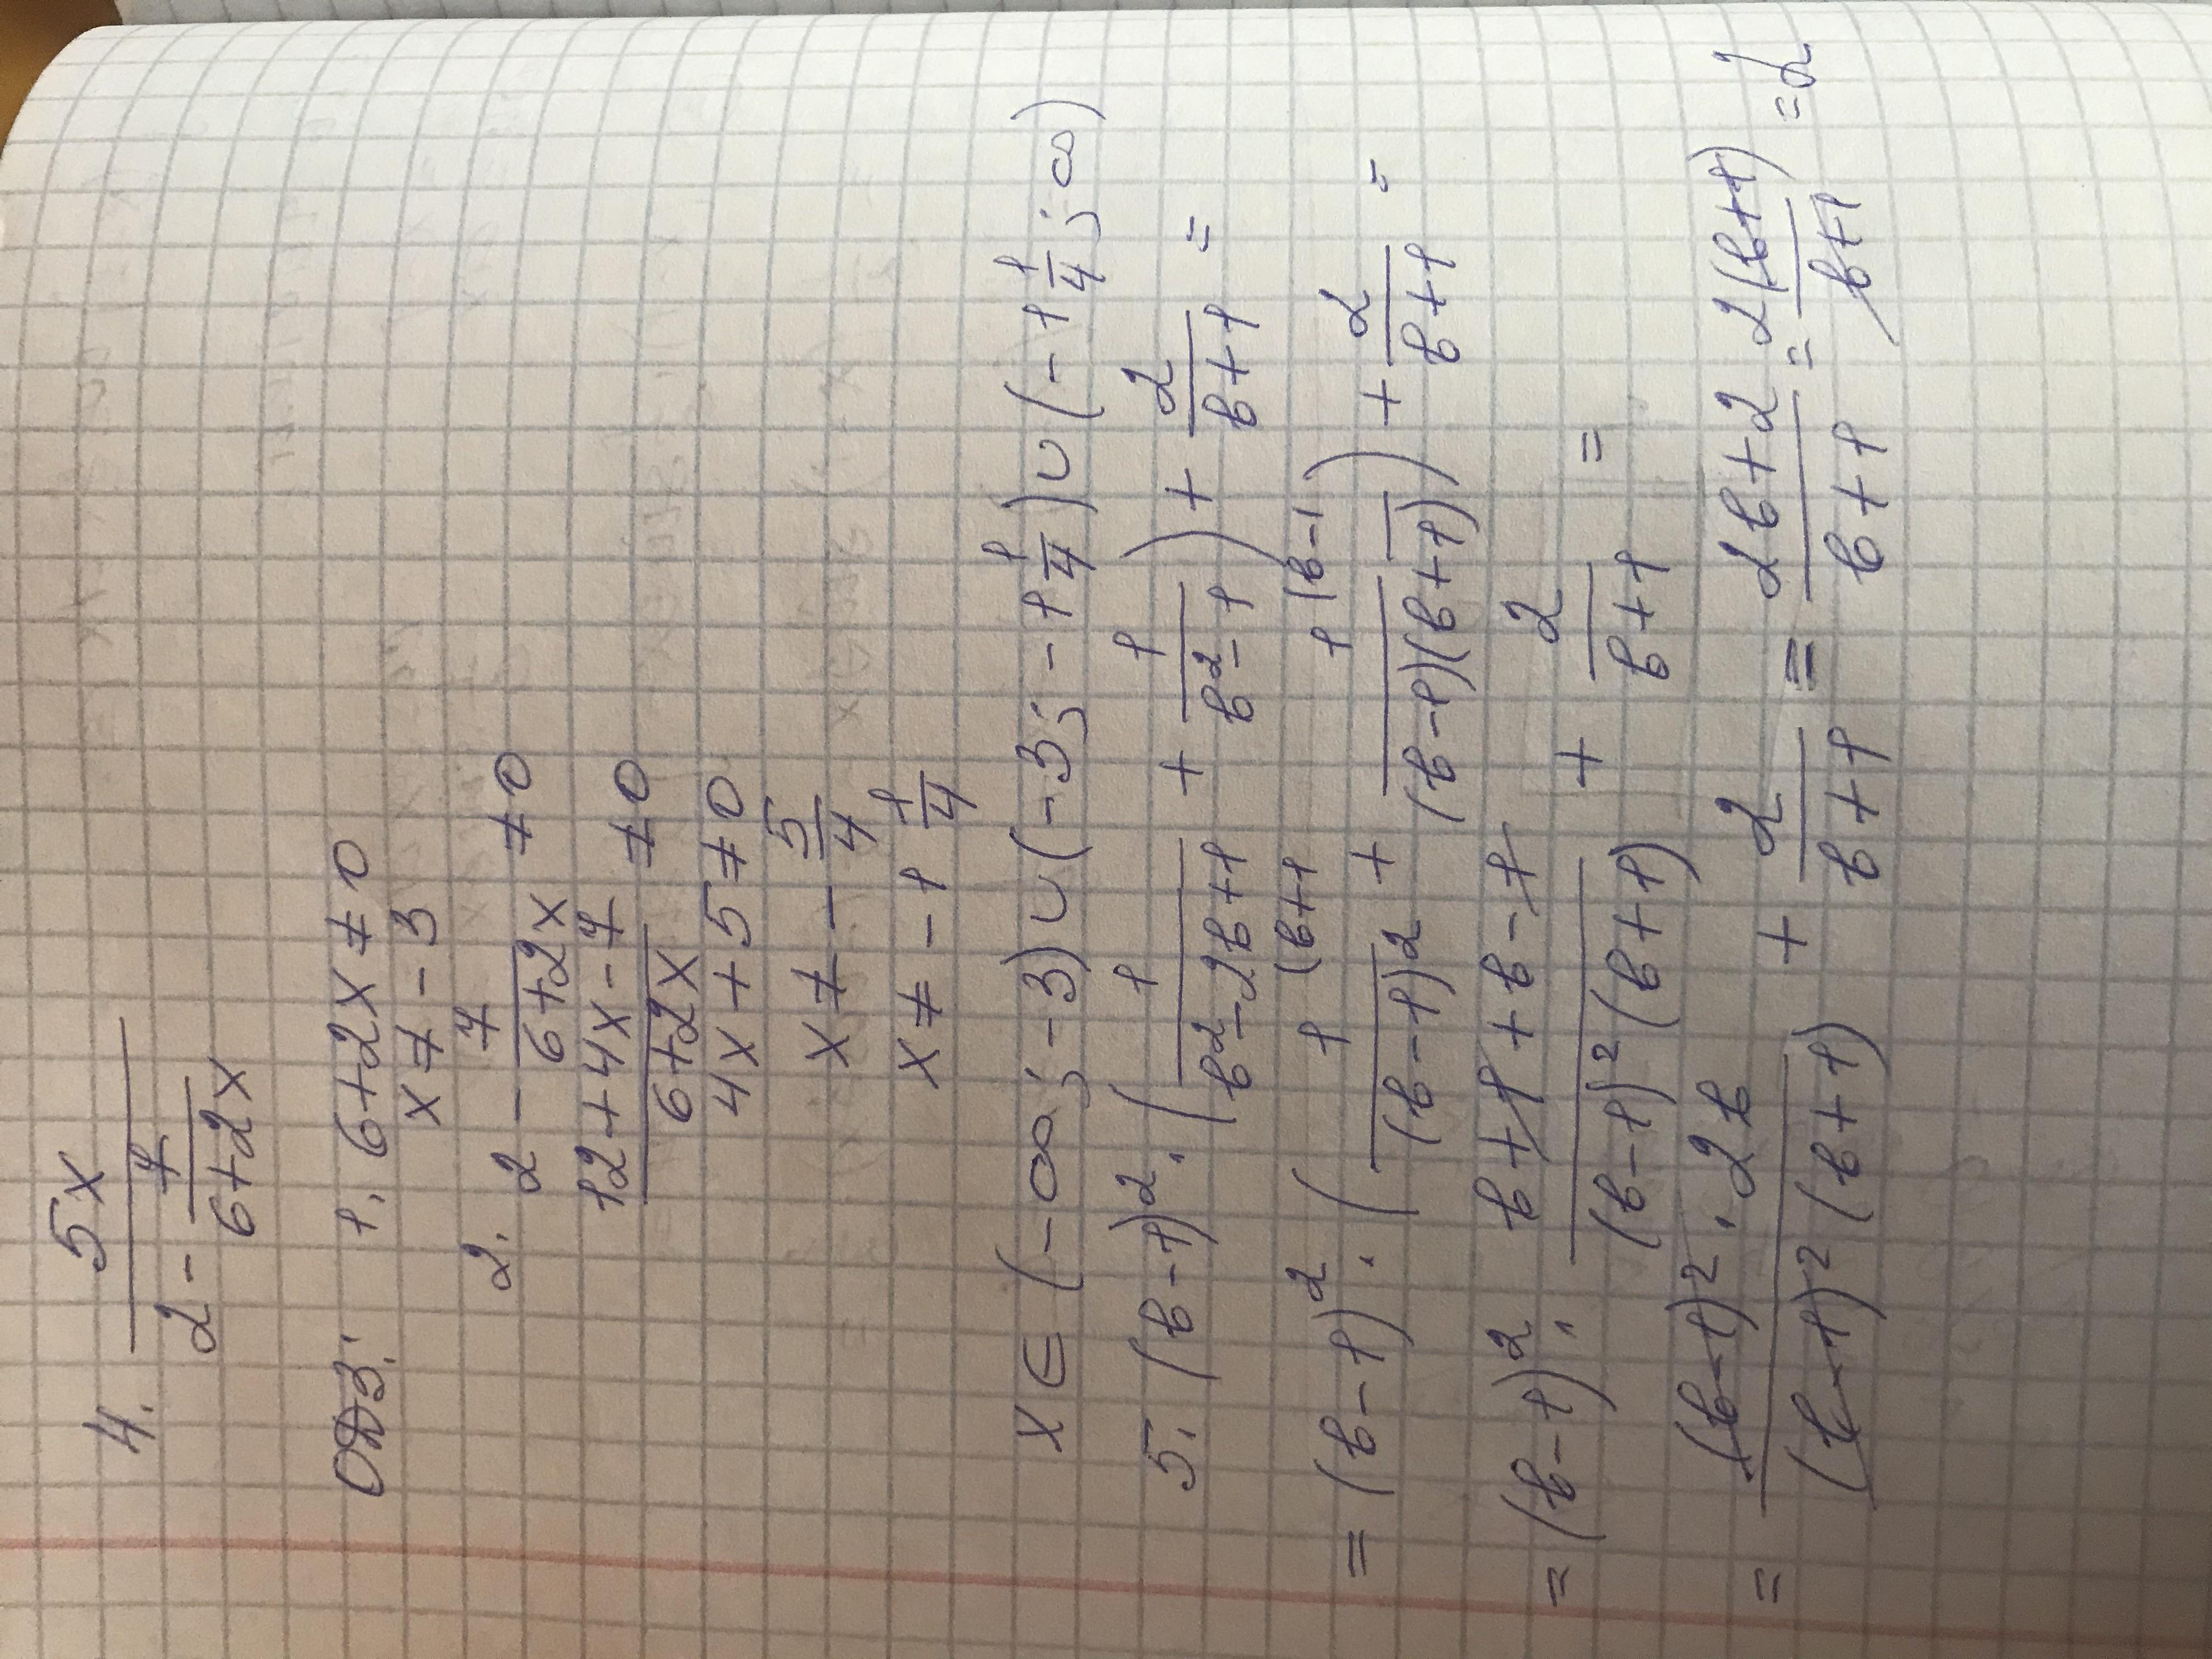 4. 5x / (2 - 7/(6+2x))
ОДЗ: 1. 6+2x ≠ 0
x ≠ -3
2. 2 - 7/(6+2x) ≠ 0
(12+4x-7)/(6+2x) ≠ 0
4x+5 ≠ 0
x ≠ -5/4
x ≠ -1 1/4
x ∈ (-∞; -3) ∪ (-3; -1 1/4) ∪ (-1 1/4; ∞)
5. (b-1)² · (1/(b²-2b+1) + 1/(b²-1)) + 2/(b+1) =
= (b-1)² · (1 (b+1 / (b-1)² + 1 (b-1) / ((b-1)(b+1))) + 2/(b+1) =
= (b-1)² · (b+1+b-1)/((b-1)²(b+1)) + 2/(b+1) =
= (b-1)² · 2b / ((b-1)²(b+1)) + 2/(b+1) = (2b+2)/(b+1) = 2(b+1)/(b+1) = 2